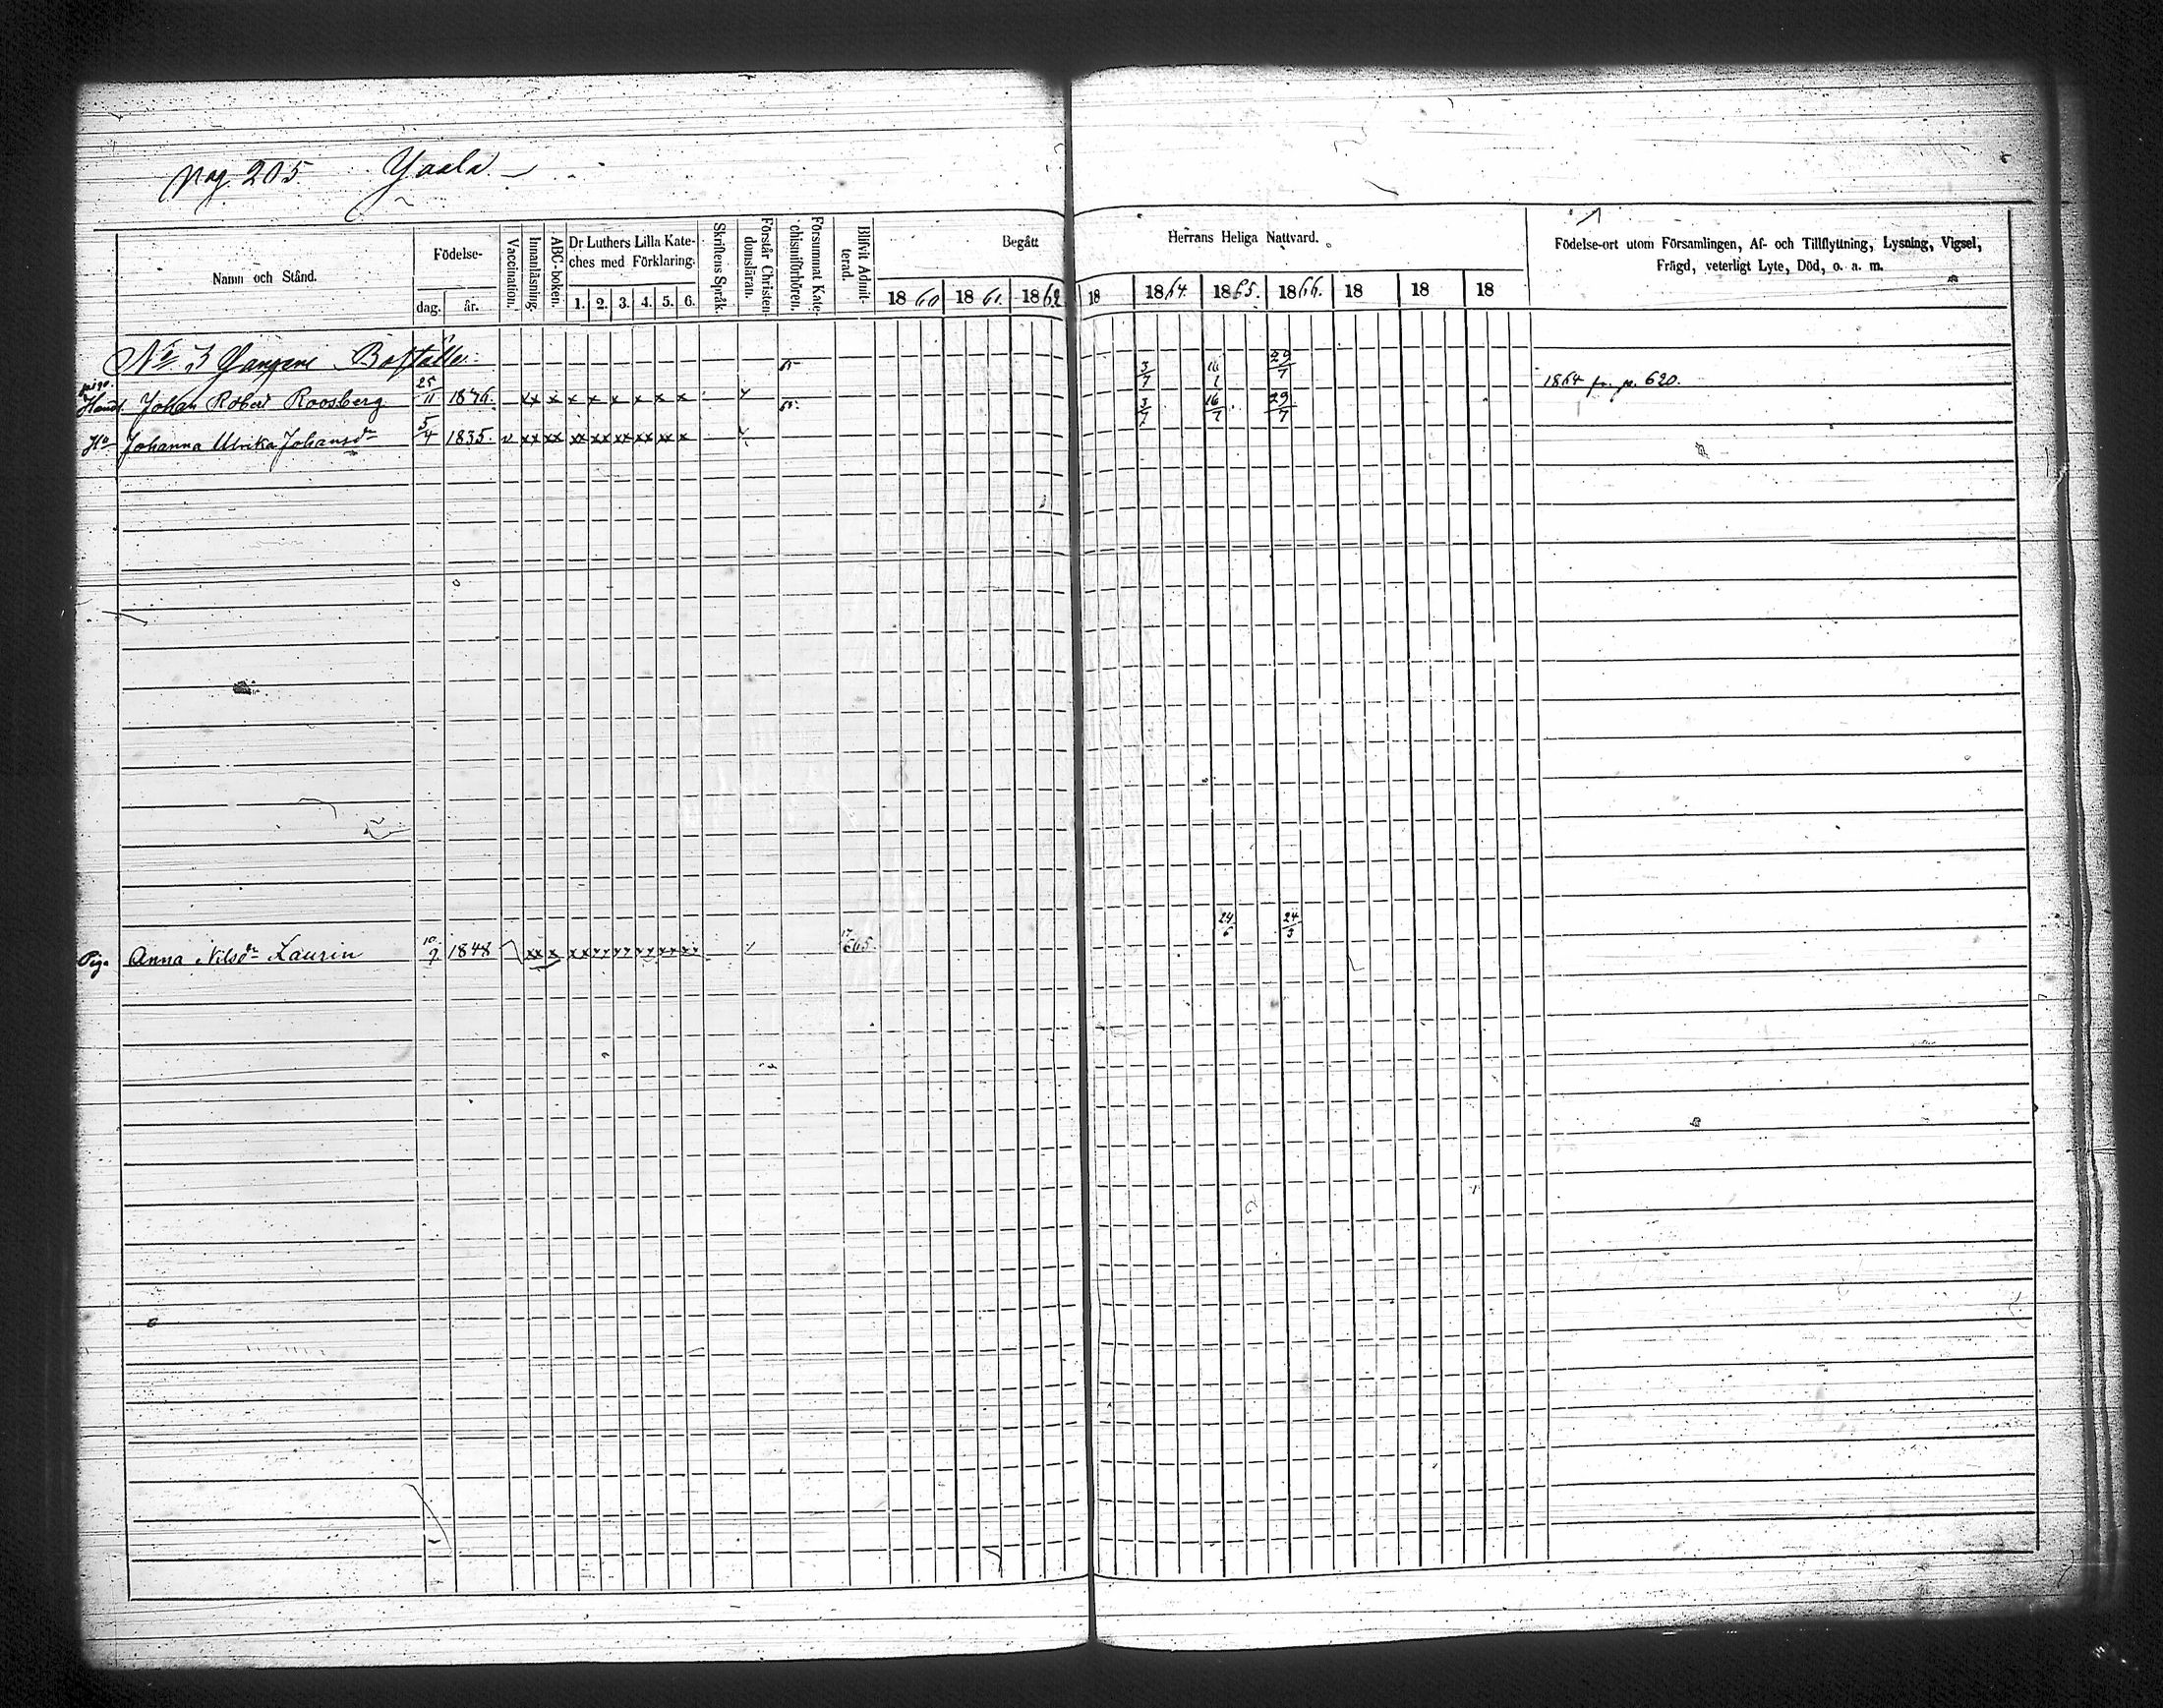 pag. 205. Yaala.
Namn och Stånd.
Födelse-
dag. år.
Vaccination.
Innanläsning.
ABC-boken.
Dr Luthers Lilla Kate-
ches med Förklaring.
1. 2. 3. 4. 5. 6.
Skriftens Språk.
Förstår Christen-
domsläran.
Försummat Kate-
chismiförhören.
Blifvit Admit-
terad.
Begått Herrans Heliga Nattvard.
1860 1861. 1862 18 1864. 1865. 1866. 18 18 18
Födelse-ort utom Församlingen, Af- och Tillflyttning, Lysning, Vigsel,
Frägd, veterligt Lyte, Död, o. a. m.
No 3 Boställe.
65 3/7 16/7 29/7
Handl. Johan Robert Roosberg 25/11 x x x x x x x 1864 fr. p. 620.
65. 3/7 16/7 29/7
Ho Johanna Ulrika Johansdr 5/4 1835. v xx xx xx xx xx xx xx x
24/6 24/3
Pig. Anna Nilsdr Laurin 10/7 1848 xx x xx